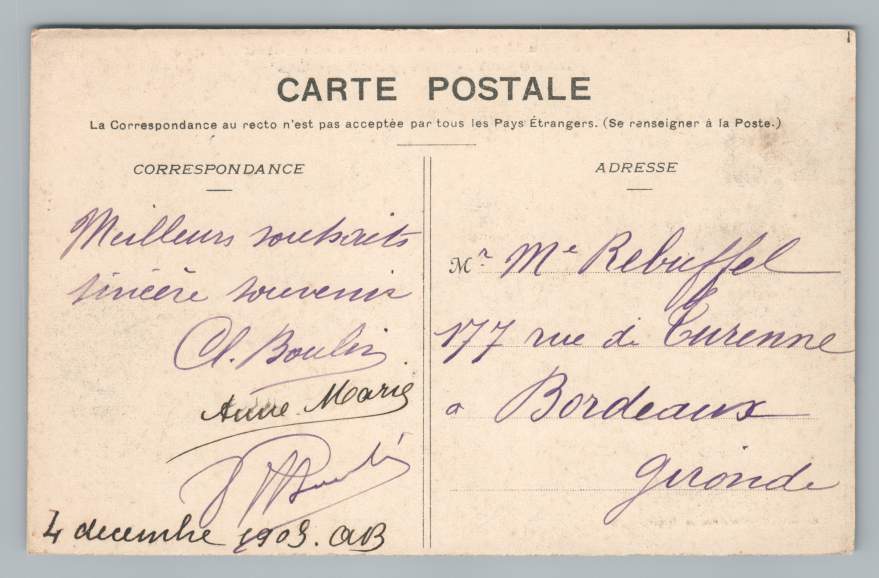 CARTE POSTALE
La Correspondance au recto n'est pas acceptée par tous les Pays Étrangers. (Se renseigner à la Poste.)
CORRESPONDANCE
Meilleurs souhaits
sincère souvenir
Cl. Boulin
Anne Marie
4 decembre 1903. AB
ADRESSE
Mr Me Rebuffel
177 rue de Turenne
a Bordeaux
Gironde